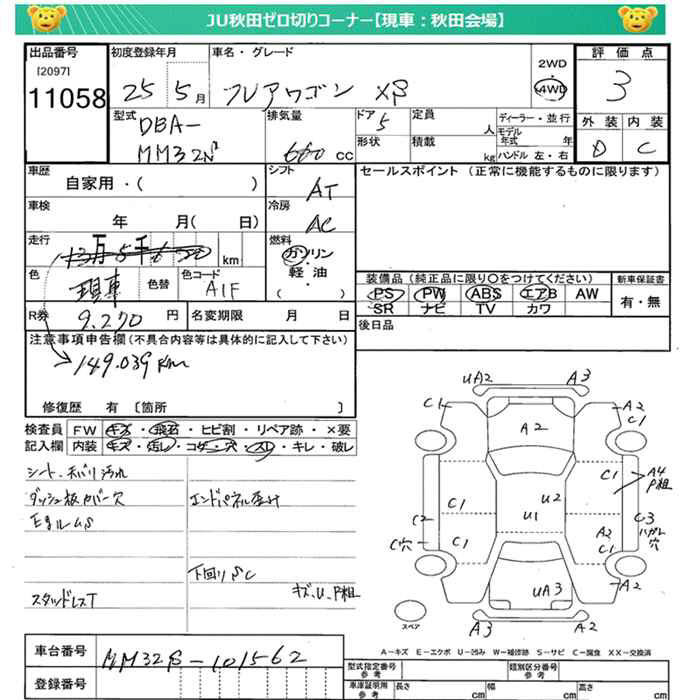 JU秋田ゼロ切りコーナー【現車：秋田会場】
出品番号
[2097]
11058
初度登録年月
25 5月
車名・グレード
フレアワゴン XS
2WD
・
4WD
評価点
3
外装 内装
D C
型式
DBA-
MM32S
排気量
660 cc
ドア 5
形状
定員 人
積載 kg
ディーラー・並行
モデル年式 年
ハンドル 左・右
車歴
自家用・( )
シフト
AT
セールスポイント (正常に機能するものに限ります)
車検
年 月( 日)
冷房
AC
走行
13万5千 km
燃料
ガソリン
・
軽油
・
( )
色
現車
色替
色コード
A1F
装備品 (純正品に限り〇をつけてください)
PS PW ABS エアB AW
SR ナビ TV カワ
新車保証書
有・無
R券
9,270 円
名変期限 月 日
後日品
注意事項申告欄 (不具合内容等は具体的に記入して下さい)
149.039km
修復歴 有 [箇所 ]
検査員
記入欄
FW キズ・飛石・ヒビ割・リペア跡・×要
内装 キズ・汚レ・コゲ・穴・スレ・キレ・破レ
シート、天バリ汚れ
ダッシュ板カバー穴
エンドパネル歪み
下回りSC
キズ、U、P粗
スタッドレスT
UA2 A3
C1 A2 A2
C1
C1 A4
P粗
C1 U2
U1
C2 C3
ハガレ
穴
C穴 C1 A2
C1
UA3 A2
A3 A2
スペア
A－キズ E－エクボ U－凹み W－補修跡 S－サビ C－腐食 XX－交換済
車台番号
MM32S-101562
登録番号
型式指定番号
参考
類別区分番号
参考
車庫証明用
参考
長さ cm
幅 cm
高さ cm